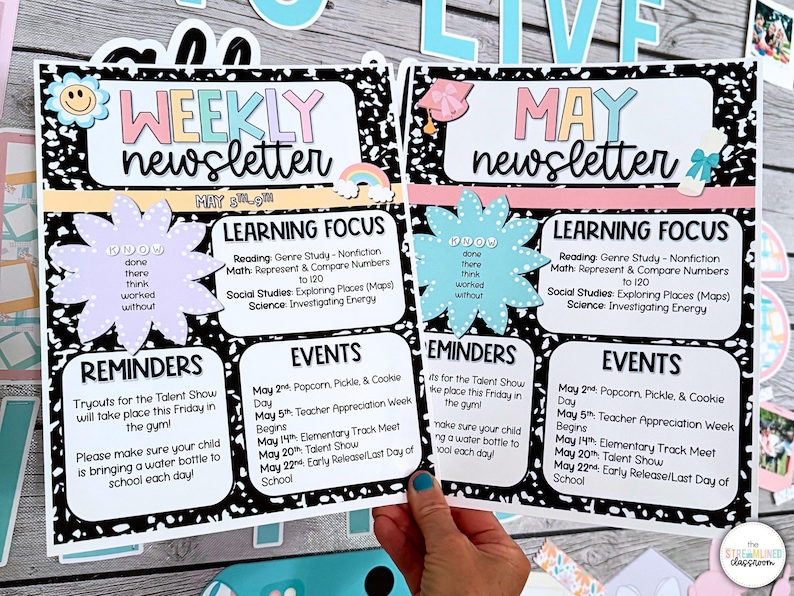 TO LIVE
all
WEEKLY
newsletter
MAY 5TH-9TH
KNOW
done
there
think
worked
without
LEARNING FOCUS
Reading: Genre Study - Nonfiction
Math: Represent & Compare Numbers
to 120
Social Studies: Exploring Places (Maps)
Science: Investigating Energy
REMINDERS
Tryouts for the Talent Show
will take place this Friday in
the gym!
Please make sure your child
is bringing a water bottle to
school each day!
EVENTS
May 2nd: Popcorn, Pickle, & Cookie
Day
May 5th: Teacher Appreciation Week
Begins
May 14th: Elementary Track Meet
May 20th: Talent Show
May 22nd: Early Release/Last Day of
School
MAY
newsletter
KNOW
done
there
think
worked
without
LEARNING FOCUS
Reading: Genre Study - Nonfiction
Math: Represent & Compare Numbers
to 120
Social Studies: Exploring Places (Maps)
Science: Investigating Energy
EMINDERS
Tryouts for the Talent Show
will take place this Friday in
the gym!
ease make sure your child
bringing a water bottle to
school each day!
EVENTS
May 2nd: Popcorn, Pickle, & Cookie
Day
May 5th: Teacher Appreciation Week
Begins
May 14th: Elementary Track Meet
May 20th: Talent Show
May 22nd: Early Release/Last Day of
School
the
STREAMLINED
classroom